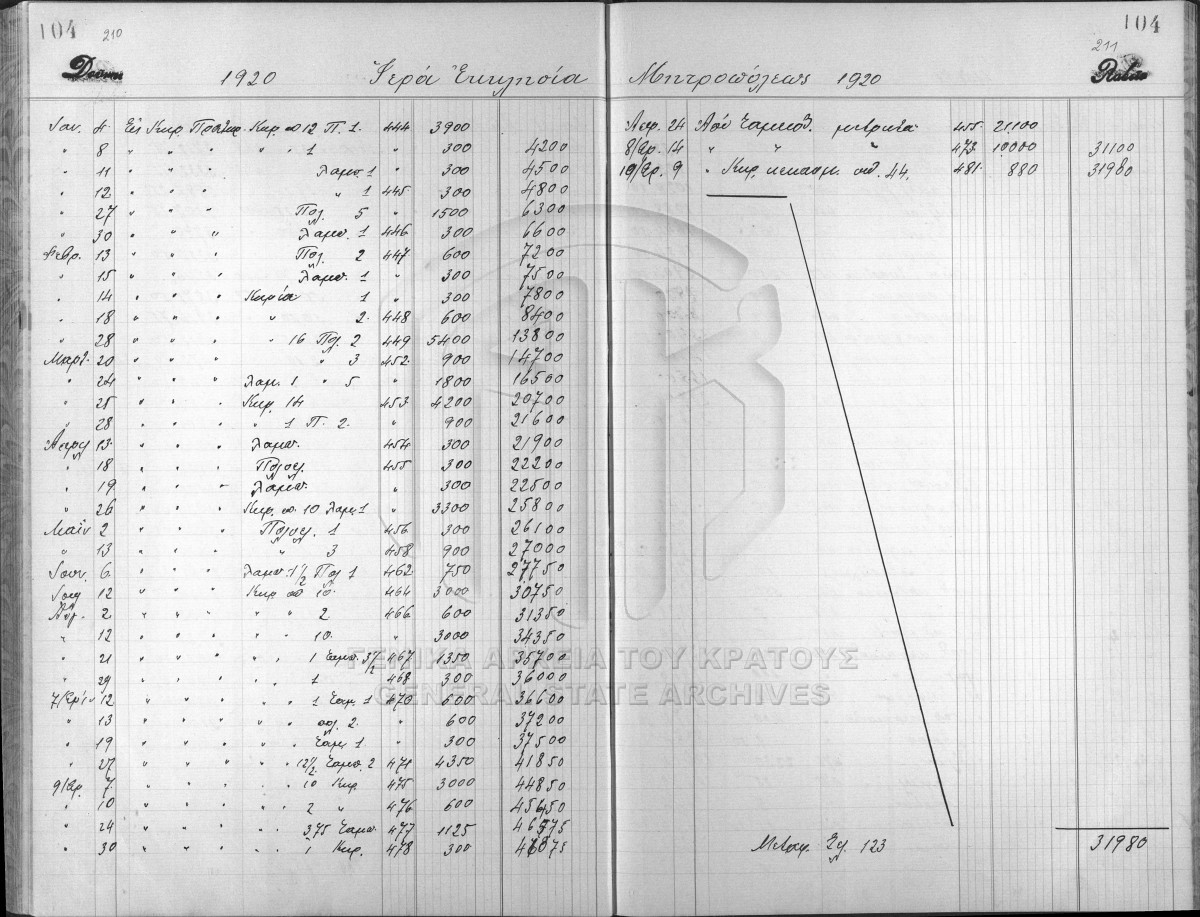 104 210
1920 Ἱερά Ἐκκλησία
Ιαν. 4. Εις Κηρ. Κηρ. 12 Π. 1. 444 3900
" 8 " " " " " 1 " 300 4200
" 11 " " " Λαμπ. 1 " 300 4500
" 12 " " " " 1 445 300 4800
" 27 " " " Πολ. 5 " 1500 6300
" 30 " " " Λαμπ. 1 446 300 6600
Φεβρ. 13 " " " Πολ. 2 447 600 7200
" 15 " " " Λαμπ. 1 " 300 7500
" 14 " " " Κηρία 1 " 300 7800
" 18 " " " " 2. 448 600 8400
" 28 " " " " 16 Πολ. 2 449 5400 13800
Μαρτ. 20 " " " " 3 452 900 14700
" 24 " " " Λαμ. 1 " 5 " 1800 16500
" 25 " " " Κηρ. 14 453 4200 20700
" 28 " " " " 1 Π. 2. " 900 21600
Απριλ 13 " " " Λαμπ. 454 300 21900
" 18 " " " Πολυελ. 455 300 22200
" 19 " " " Λαμπ. " 300 22500
" 26 " " " Κηρ. 10 Λαμ. 1 " 3300 25800
Μαΐου 2 " " " Πολυελ. 1 456 300 26100
" 13 " " " " 3 458 900 27000
Ιουν. 6. " " " Λαμπ. 1 1/2 Πολ 1 462 750 27750
Ιουλ 12 " " " Κηρ 10. 464 3000 30750
Αυγ. 2 " " " " " 2 466 600 31350
" 12 " " " " " 10. " 3000 34350
" 21 " " " " " 1 Λαμπ. 3 1/2 467 1350 35700
" 29 " " " " " 1 468 300 36000
7/βρίου 12 " " " " " 1 Λαμ. 1 470 600 36600
" 13 " " " " " πολ. 2. " 600 37200
" 19 " " " " " Λαμ 1 " 300 37500
" 27 " " " " " 12 1/2 Λαμπ. 2 471 4350 41850
9/βρ. 7 " " " " " 10 Κηρ. 475 3000 44850
" 10 " " " " " 2 " 476 600 45450
" 24 " " " " " 3,75 Λαμπ. 477 1125
" 30 " " " " " 1 Κηρ. 478 300
104 211
Μητροπόλεως 1920
Απρ. 24 μετρητά 455. 21100
8/βρ. 14 " " " 473. 10000 31100
10/βρ. 9 " Κηρ. 44. 481. 880 31980
31980
Μεταφ. Σελ. 123
ΓΕΝΙΚΑ ΑΡΧΕΙΑ ΤΟΥ ΚΡΑΤΟΥΣ
GENERAL STATE ARCHIVES